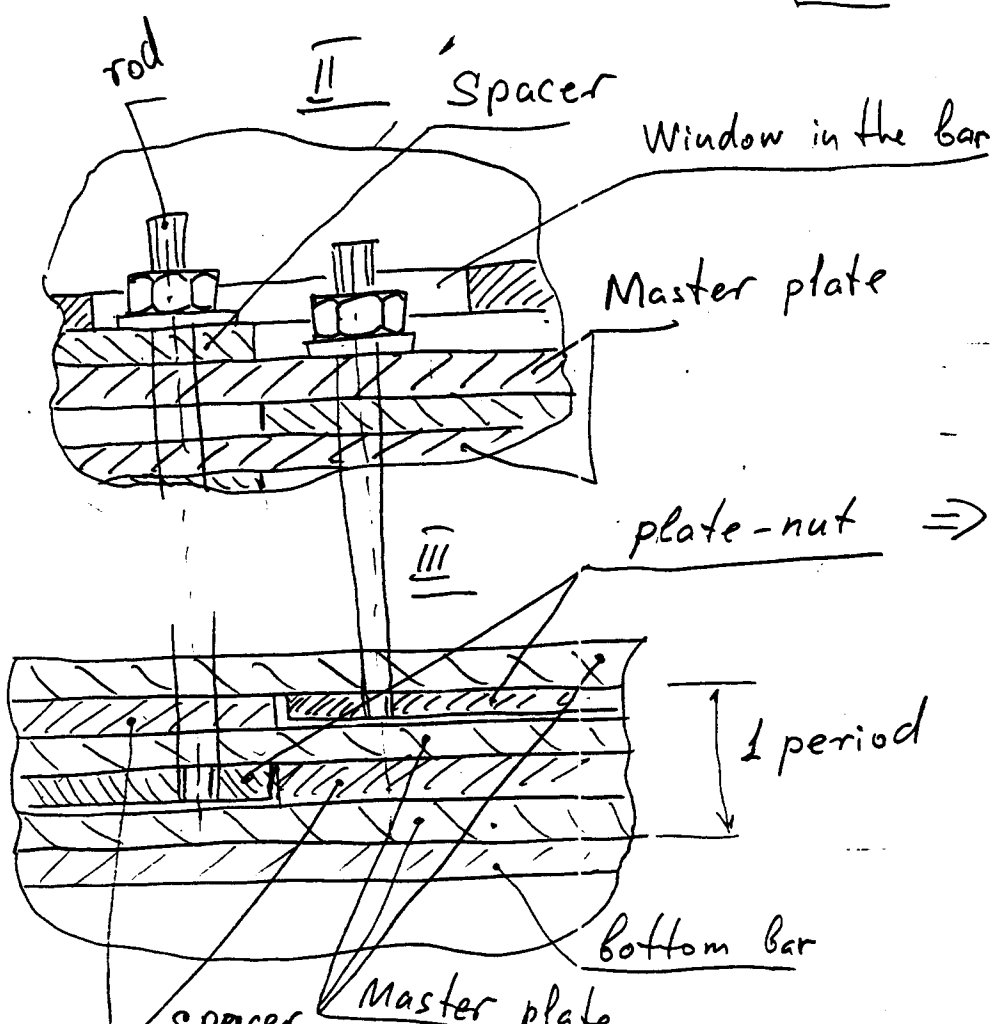 rod
II
Spacer
Window in the bar
Master plate
III
plate-nut ⇒
1 period
bottom bar
spacer
Master plate